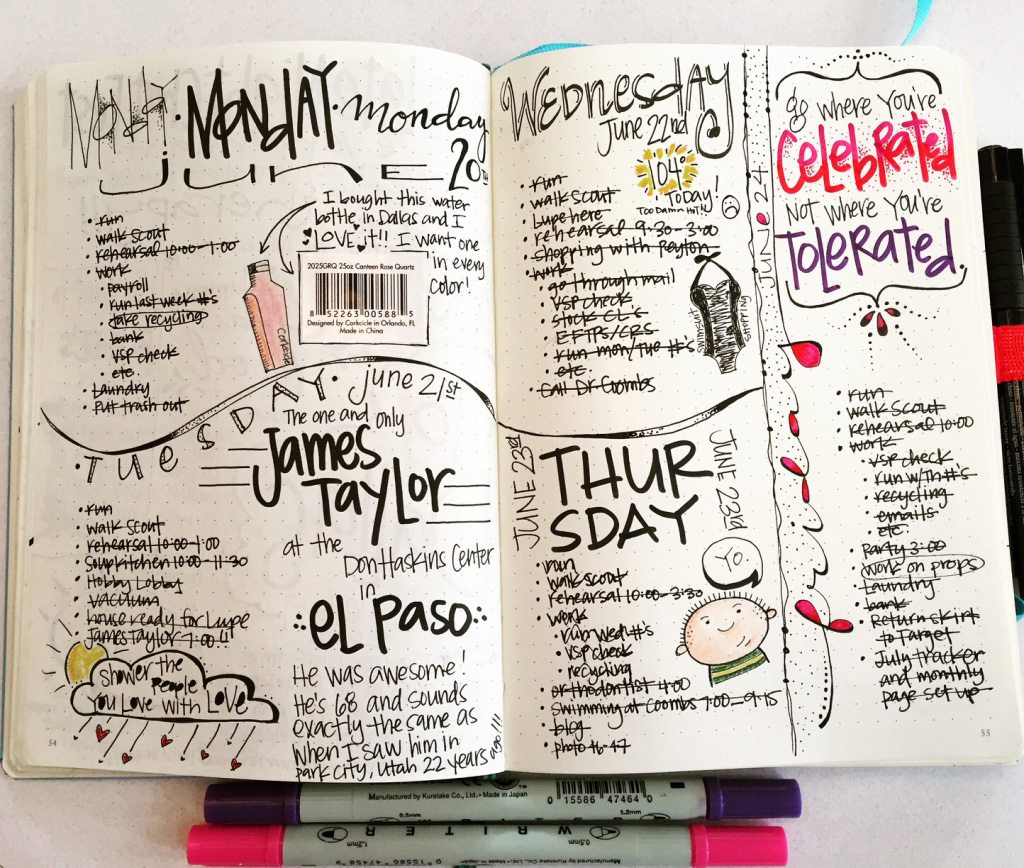 MONDAY • MONDAY • monday
JUNE 20th
• run
• walk scout
• rehearsal 10:00-1:00
• work
• payroll
• run last week #'s
• take recycling
• bank
• VSP check
• etc.
• Laundry
• Put trash out
I bought this water
bottle in Dallas and I
LOVE it!! I want one
in every
color!
2025GRQ 25oz Canteen Rose Quartz
8 52263 00588 5
Designed by Corkcicle in Orlando, FL
Made in China
Corkcicle
• TUESDAY • june 21st
• run
• walk scout
• rehearsal 10:00-1:00
• Soup kitchen 10:00-11:30
• Hobby Lobby
• vacuum
• house ready for Lupe
• James Taylor 7:00!!
The one and only
James
Taylor
at the
Don Haskins Center
in
EL PASO
He was awesome!
He's 68 and sounds
exactly the same as
when I saw him in
park city, Utah 22 years ago!!!
Shower the
People
You Love with Love
54
WEDNESDAY
June 22nd
104°
TODAY!
Too Damn Hot!!
• run
• walk scout
• Lupe here
• rehearsal 9:30-3:00
• shopping with Peyton
• work
• go through mail
• VSP check
• stock CL's
• EFTPS/CRS
• run mon/tue #'s
• etc.
• call Dr Coombs
swimsuit
shopping
JUNE 23rd
THUR
SDAY
JUNE 23rd
YO.
• run
• walk scout
• rehearsal 10:00-3:30
• work
• run wed #'s
• VSP check
• recycling
• orthodontist 4:00
• Swimming at Coombs 7:00-9:15
• blog
• photo 46-47
JUN • 24
go where you're
CELEBRATED
Not where you're
TOLERATED.
• run
• walk scout
• rehearsal 10:00
• work
• VSP check
• run w/th #'s
• recycling
• emails
• etc.
• Party 3:00
• work on props
• Laundry
• bank
• Return skirt
to Target
• July tracker
and monthly
page set up
55
Manufactured by Kuretake Co., Ltd. • Made in Japan
0 15586 47464 0
0.5mm
1.2mm
1.2mm
WRITER
0.5mm